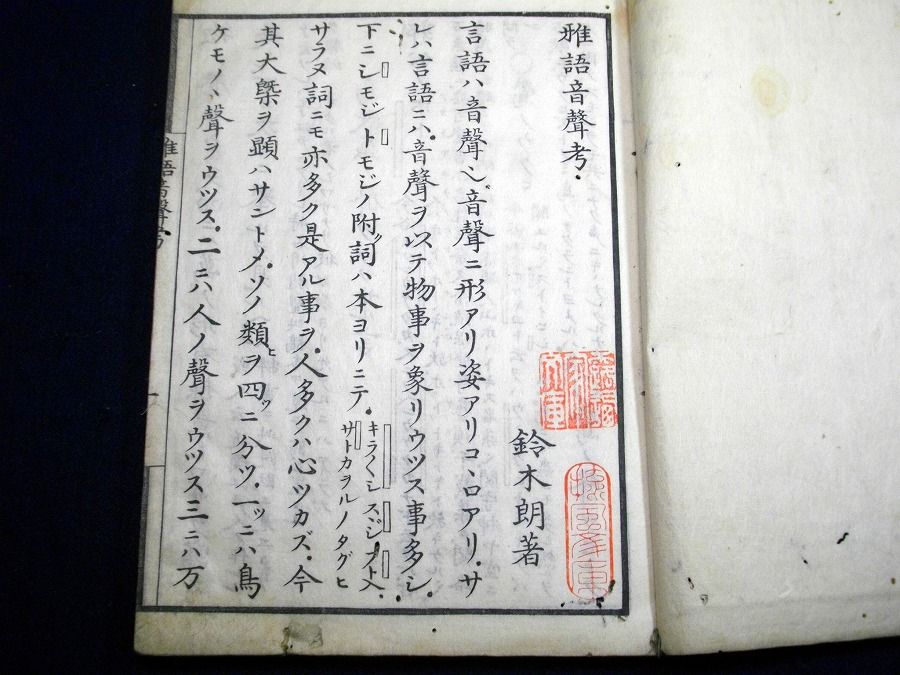 雅語音聲考・
鈴木朗著
言語ハ音聲也音聲ニ形アリ姿アリコヽロアリ.サ
レハ言語ニハ.音聲ヲ以テ物事ヲ象リウツス事多シ.
下ニシモジトモジノ附ノ詞ハ本ヨリニテ.キラ〱シ
サトカヲルノタグヒ
サラヌ詞ニモ亦多ク是アル事ヲ.人多クハ心ツカズ.今
其大槩ヲ顕ハサントメ.ソノ類ヒヲ四ツニ分ツ.一ツニハ鳥
ケモノヽ聲ヲウツス.二ニハ人ノ聲ヲウツス三ニハ万